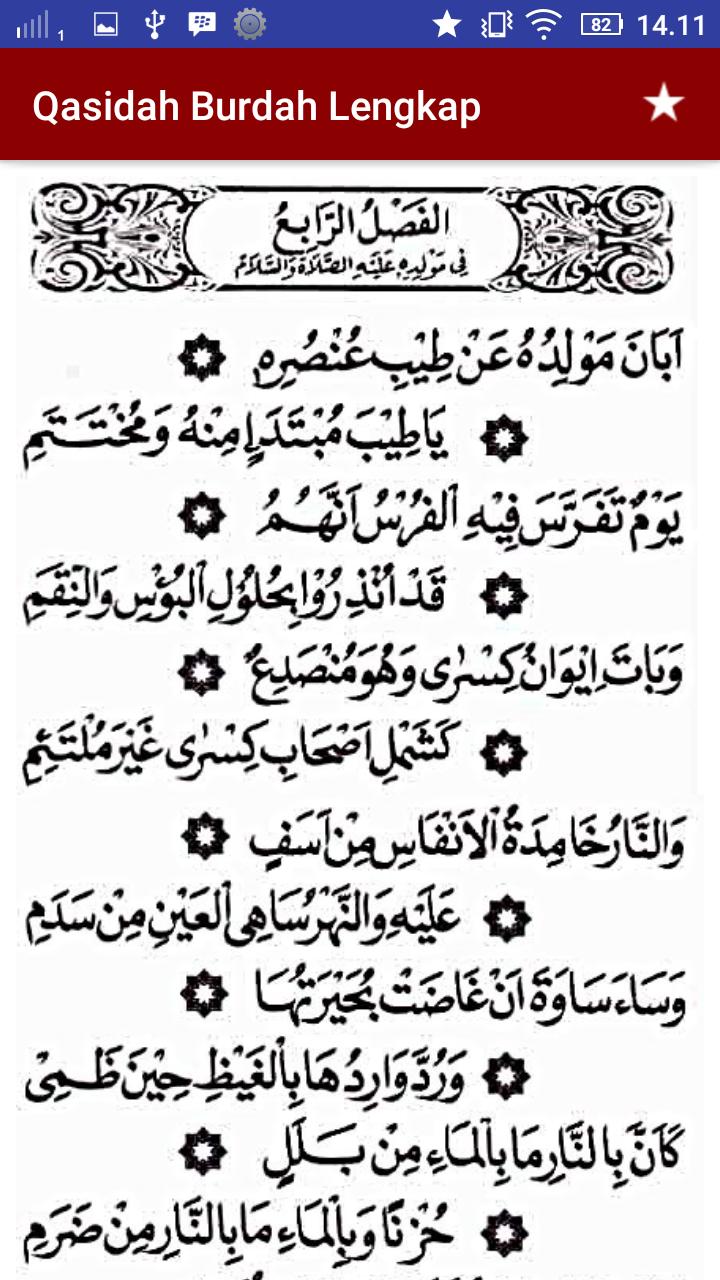 1 82 14.11
Qasidah Burdah Lengkap
الفَصْلُ الرَّابِعُ
فِي مَوْلِدِهِ عَلَيْهِ الصَّلَاةُ وَالسَّلَامُ
اَبَانَ مَوْلِدُهُ عَنْ طِيْبِ عُنْصُرِهِ
يَاطِيْبَ مُبْتَدَإٍ مِنْهُ وَمُخْتَتَمِ
يَوْمٌ تَفَرَّسَ فِيْهِ الْفُرْسُ اَنَّهُمُ
قَدْ اُنْذِرُوْا بِحُلُوْلِ الْبُؤْسِ وَالنِّقَمِ
وَبَاتَ اِيْوَانُ كِسْرٰى وَهُوَ مُنْصَدِعٌ
كَشَمْلِ اَصْحَابِ كِسْرٰى غَيْرَ مُلْتَئِمِ
وَالنَّارُ خَامِدَةُ الْاَنْفَاسِ مِنْ اَسَفٍ
عَلَيْهِ وَالنَّهْرُ سَاهِى الْعَيْنِ مِنْ سَدَمِ
وَسَاءَ سَاوَةَ اَنْ غَاضَتْ بُحَيْرَتُهَا
وَرُدَّ وَارِدُهَا بِالْغَيْظِ حِيْنَ ظَمِىْ
كَاَنَّ بِالنَّارِ مَا بِالْمَاءِ مِنْ بَلَلٍ
حُزْنًا وَبِالْمَاءِ مَا بِالنَّارِ مِنْ ضَرَمِ